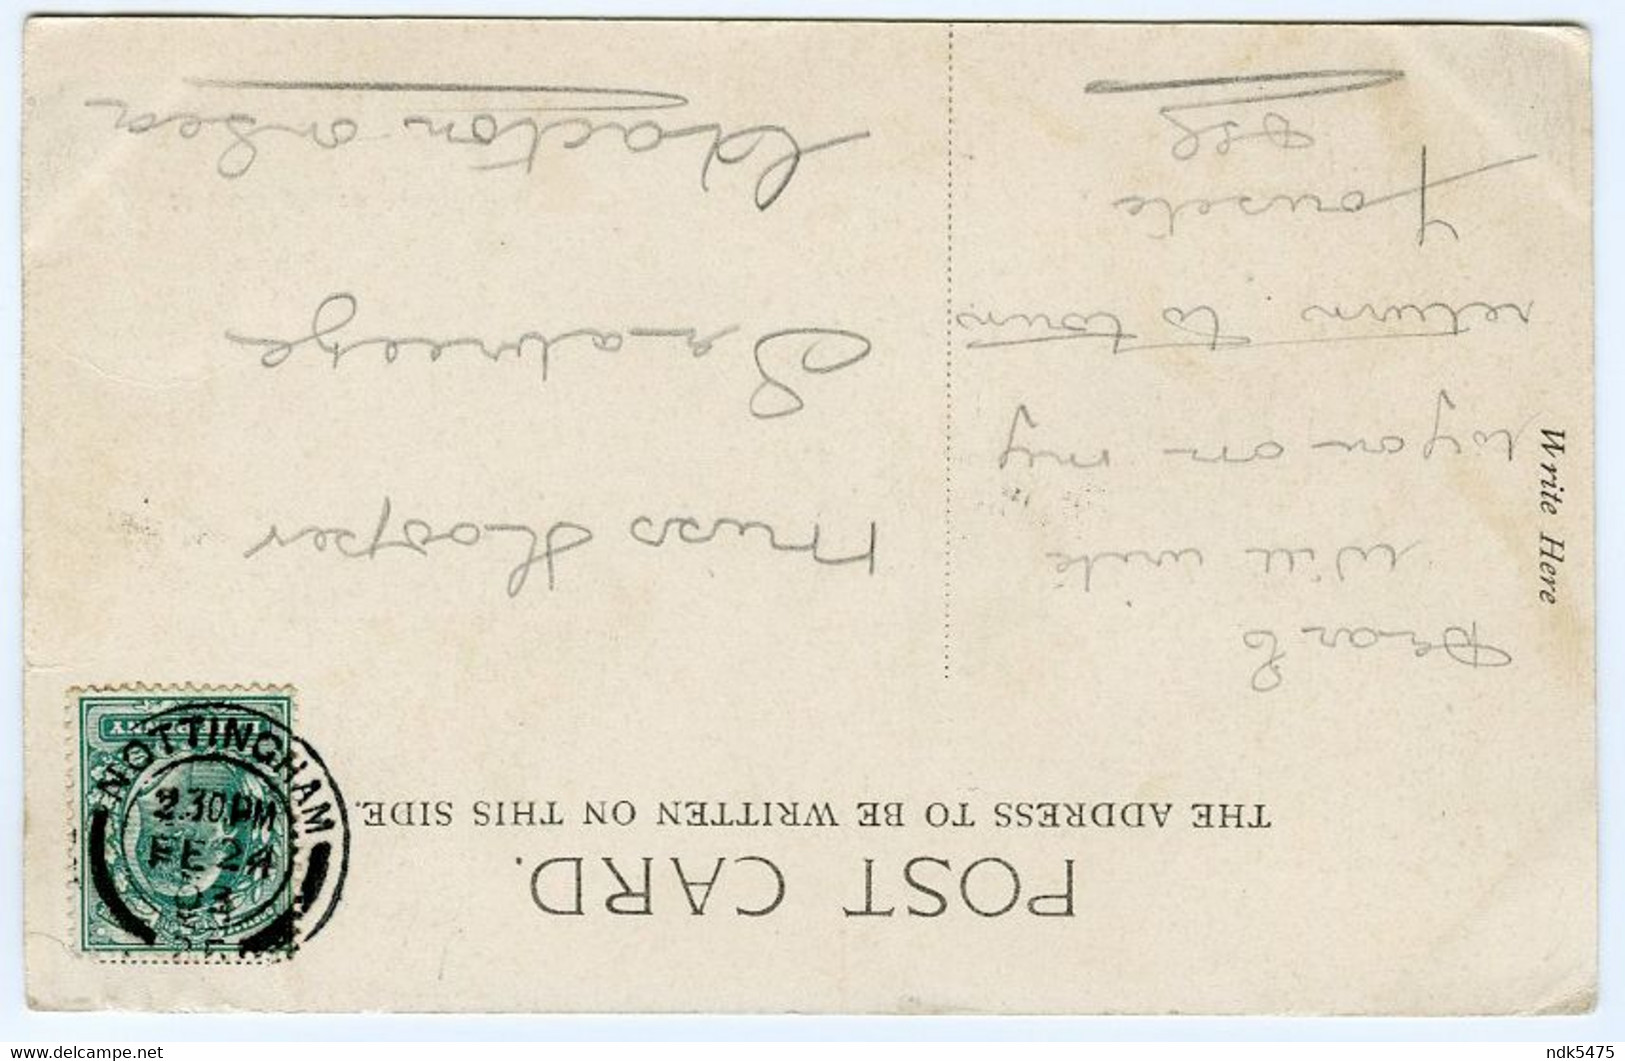 POST CARD.
THE ADDRESS TO BE WRITTEN ON THIS SIDE.
Write Here
Dear E
Will write
to you on my
return to town
Yours etc
Miss Hooper
Seabreeze
Clacton on Sea
HALFPENNY
NOTTINGHAM
2.30.PM
FE 24
03
ndk5475
www.delcampe.net